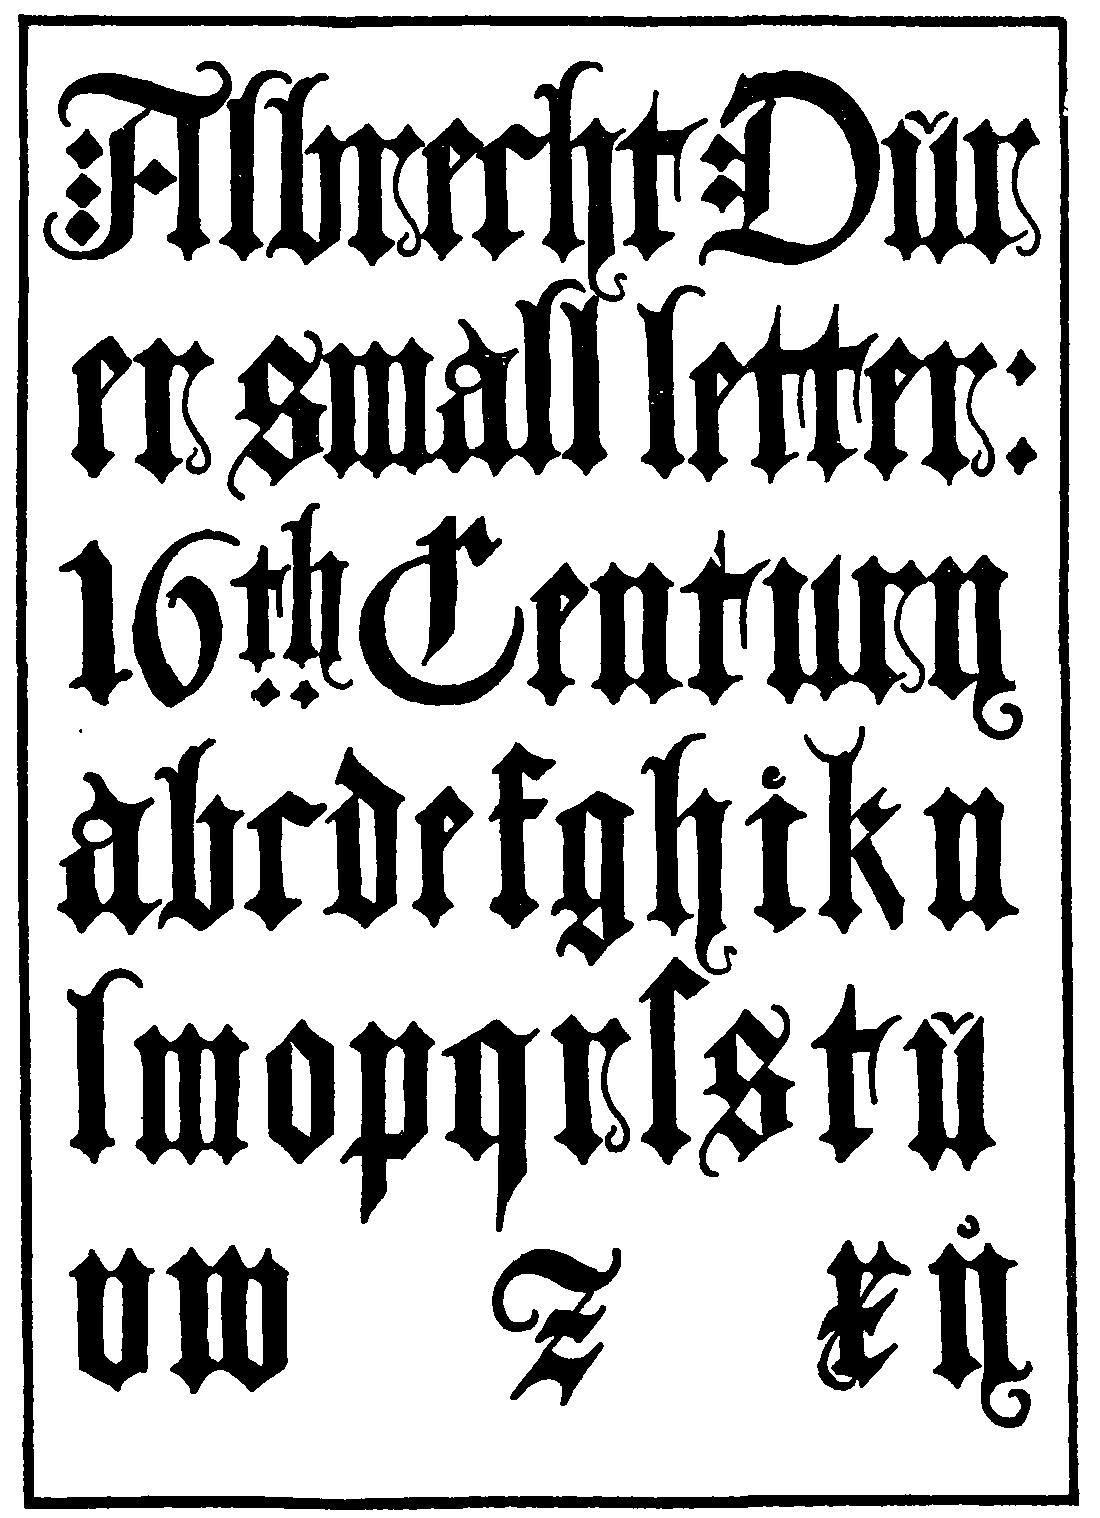 Albrecht Dŭr
er small letter:
16th Century
a b c d e f g h i k n
l m o p q r ſ s t ŭ
v w z x ẏ